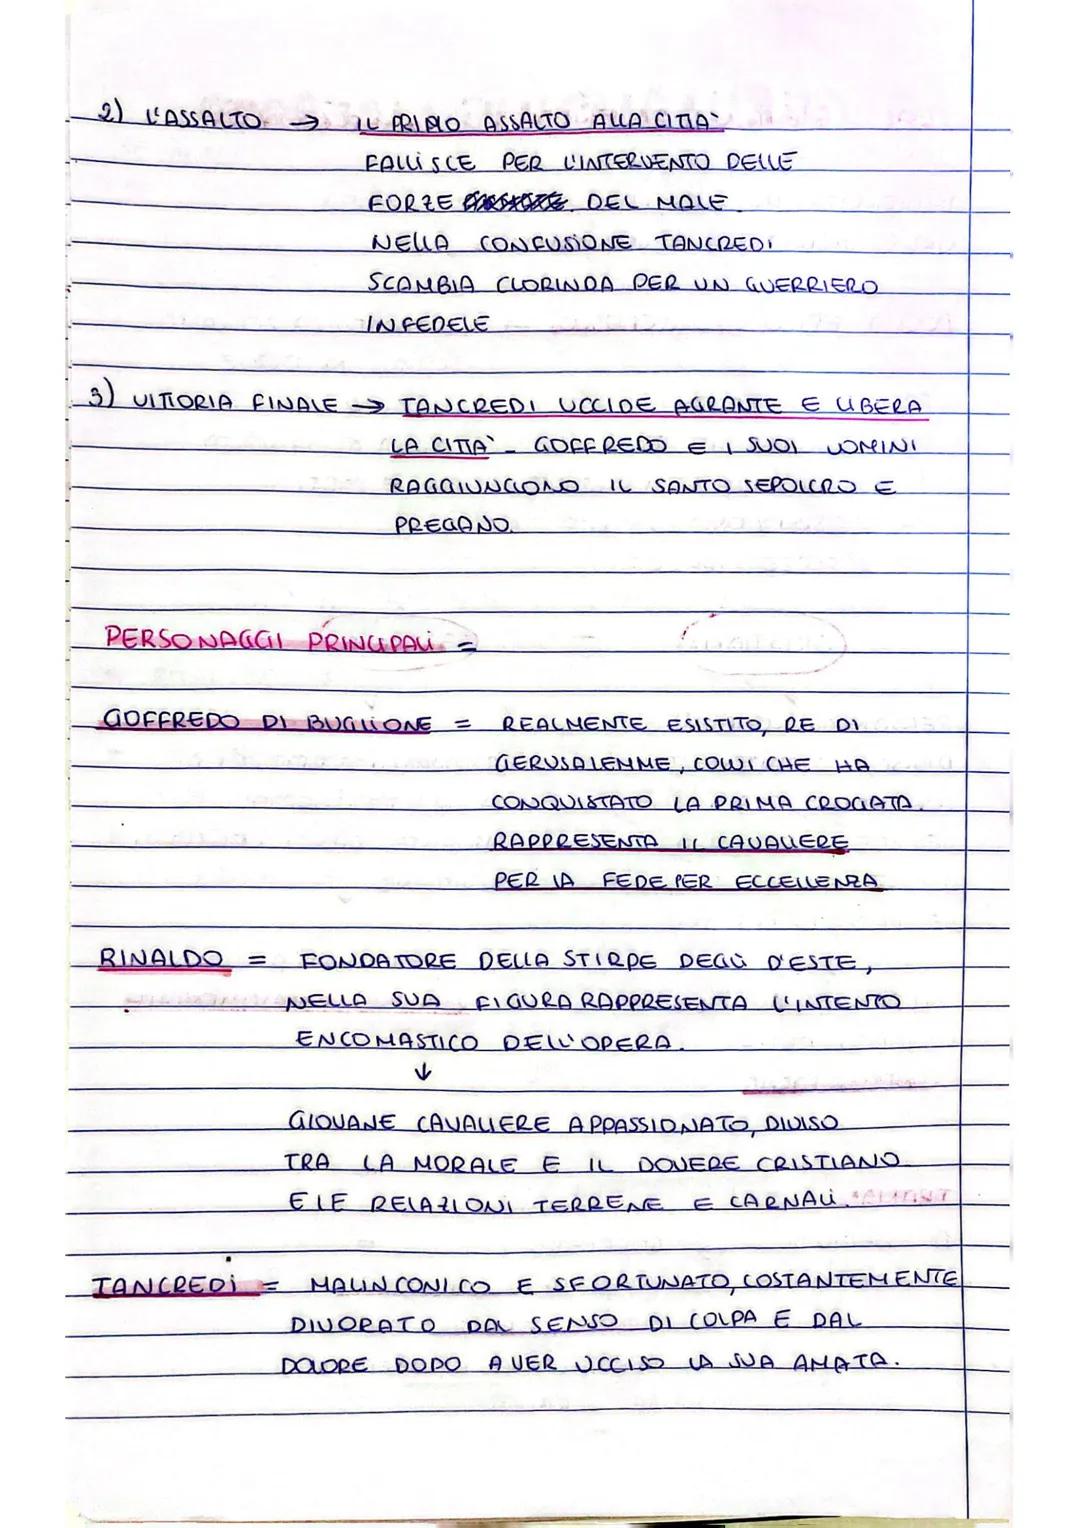 2) L'ASSALTO → IL PRIMO ASSALTO ALLA CITTA'
FALLISCE PER L'INTERVENTO DELLE
FORZE DEL MALE.
NELLA CONFUSIONE TANCREDI
SCAMBIA CLORINDA PER UN GUERRIERO
INFEDELE
3) VITTORIA FINALE → TANCREDI UCCIDE AGRANTE E LIBERA
LA CITTA' - GOFFREDO E I SUOI UOMINI
RAGGIUNGONO IL SANTO SEPOLCRO E
PREGANO.
PERSONAGGI PRINCIPALI =
GOFFREDO DI BUGLIONE = REALMENTE ESISTITO, RE DI
GERUSALEMME, COLUI CHE HA
CONQUISTATO LA PRIMA CROCIATA.
RAPPRESENTA IL CAVALIERE
PER LA FEDE PER ECCELLENZA
RINALDO = FONDATORE DELLA STIRPE DEGLI D'ESTE,
NELLA SUA FIGURA RAPPRESENTA L'INTENTO
ENCOMASTICO DELL'OPERA.
↓
GIOVANE CAVALIERE APPASSIONATO, DIVISO
TRA LA MORALE E IL DOVERE CRISTIANO
E LE RELAZIONI TERRENE E CARNALI.
TANCREDI = MALINCONICO E SFORTUNATO, COSTANTEMENTE
DIVORATO DAL SENSO DI COLPA E DAL
DOLORE DOPO AVER UCCISO LA SUA AMATA.